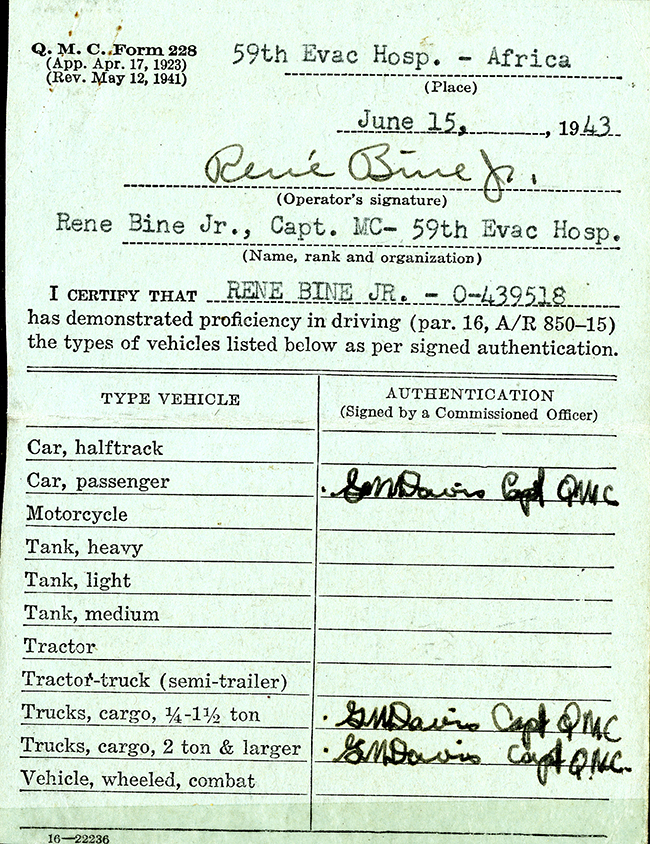 Q. M. C. Form 228
(App. Apr. 17, 1923)
(Rev. May 12, 1941)
59th Evac Hosp. - Africa
(Place)
June 15, , 1943
René Bine Jr.
(Operator's signature)
Rene Bine Jr., Capt. MC- 59th Evac Hosp.
(Name, rank and organization)
I CERTIFY THAT RENE BINE JR. - O-439518
has demonstrated proficiency in driving (par. 16, A/R 850-15)
the types of vehicles listed below as per signed authentication.
TYPE VEHICLE
AUTHENTICATION
(Signed by a Commissioned Officer)
Car, halftrack
Car, passenger GMDavis Capt QMC
Motorcycle
Tank, heavy
Tank, light
Tank, medium
Tractor
Tractor-truck (semi-trailer)
Trucks, cargo, ¼-1½ ton GMDavis Capt QMC
Trucks, cargo, 2 ton & larger GMDavis Capt QMC.
Vehicle, wheeled, combat
16—22236